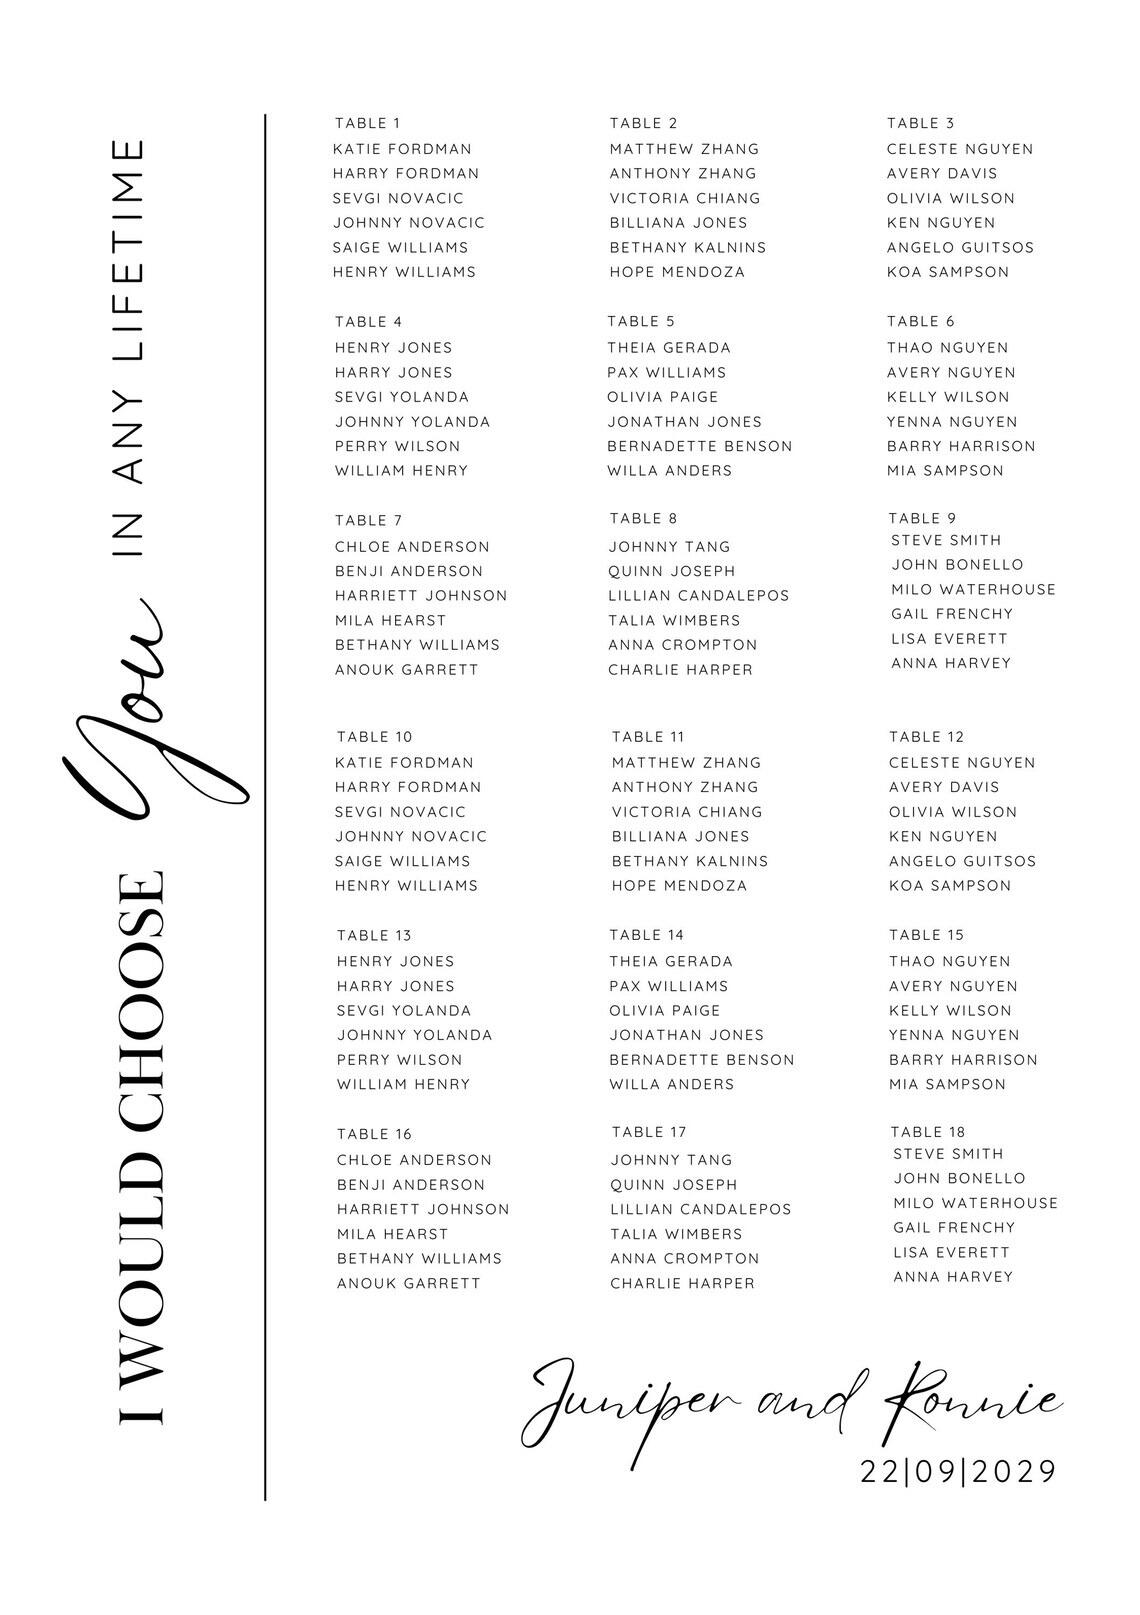 I WOULD CHOOSE You IN ANY LIFETIME
TABLE 1
KATIE FORDMAN
HARRY FORDMAN
SEVGI NOVACIC
JOHNNY NOVACIC
SAIGE WILLIAMS
HENRY WILLIAMS
TABLE 2
MATTHEW ZHANG
ANTHONY ZHANG
VICTORIA CHIANG
BILLIANA JONES
BETHANY KALNINS
HOPE MENDOZA
TABLE 3
CELESTE NGUYEN
AVERY DAVIS
OLIVIA WILSON
KEN NGUYEN
ANGELO GUITSOS
KOA SAMPSON
TABLE 4
HENRY JONES
HARRY JONES
SEVGI YOLANDA
JOHNNY YOLANDA
PERRY WILSON
WILLIAM HENRY
TABLE 5
THEIA GERADA
PAX WILLIAMS
OLIVIA PAIGE
JONATHAN JONES
BERNADETTE BENSON
WILLA ANDERS
TABLE 6
THAO NGUYEN
AVERY NGUYEN
KELLY WILSON
YENNA NGUYEN
BARRY HARRISON
MIA SAMPSON
TABLE 7
CHLOE ANDERSON
BENJI ANDERSON
HARRIETT JOHNSON
MILA HEARST
BETHANY WILLIAMS
ANOUK GARRETT
TABLE 8
JOHNNY TANG
QUINN JOSEPH
LILLIAN CANDALEPOS
TALIA WIMBERS
ANNA CROMPTON
CHARLIE HARPER
TABLE 9
STEVE SMITH
JOHN BONELLO
MILO WATERHOUSE
GAIL FRENCHY
LISA EVERETT
ANNA HARVEY
TABLE 10
KATIE FORDMAN
HARRY FORDMAN
SEVGI NOVACIC
JOHNNY NOVACIC
SAIGE WILLIAMS
HENRY WILLIAMS
TABLE 11
MATTHEW ZHANG
ANTHONY ZHANG
VICTORIA CHIANG
BILLIANA JONES
BETHANY KALNINS
HOPE MENDOZA
TABLE 12
CELESTE NGUYEN
AVERY DAVIS
OLIVIA WILSON
KEN NGUYEN
ANGELO GUITSOS
KOA SAMPSON
TABLE 13
HENRY JONES
HARRY JONES
SEVGI YOLANDA
JOHNNY YOLANDA
PERRY WILSON
WILLIAM HENRY
TABLE 14
THEIA GERADA
PAX WILLIAMS
OLIVIA PAIGE
JONATHAN JONES
BERNADETTE BENSON
WILLA ANDERS
TABLE 15
THAO NGUYEN
AVERY NGUYEN
KELLY WILSON
YENNA NGUYEN
BARRY HARRISON
MIA SAMPSON
TABLE 16
CHLOE ANDERSON
BENJI ANDERSON
HARRIETT JOHNSON
MILA HEARST
BETHANY WILLIAMS
ANOUK GARRETT
TABLE 17
JOHNNY TANG
QUINN JOSEPH
LILLIAN CANDALEPOS
TALIA WIMBERS
ANNA CROMPTON
CHARLIE HARPER
TABLE 18
STEVE SMITH
JOHN BONELLO
MILO WATERHOUSE
GAIL FRENCHY
LISA EVERETT
ANNA HARVEY
Juniper and Ronnie
22|09|2029